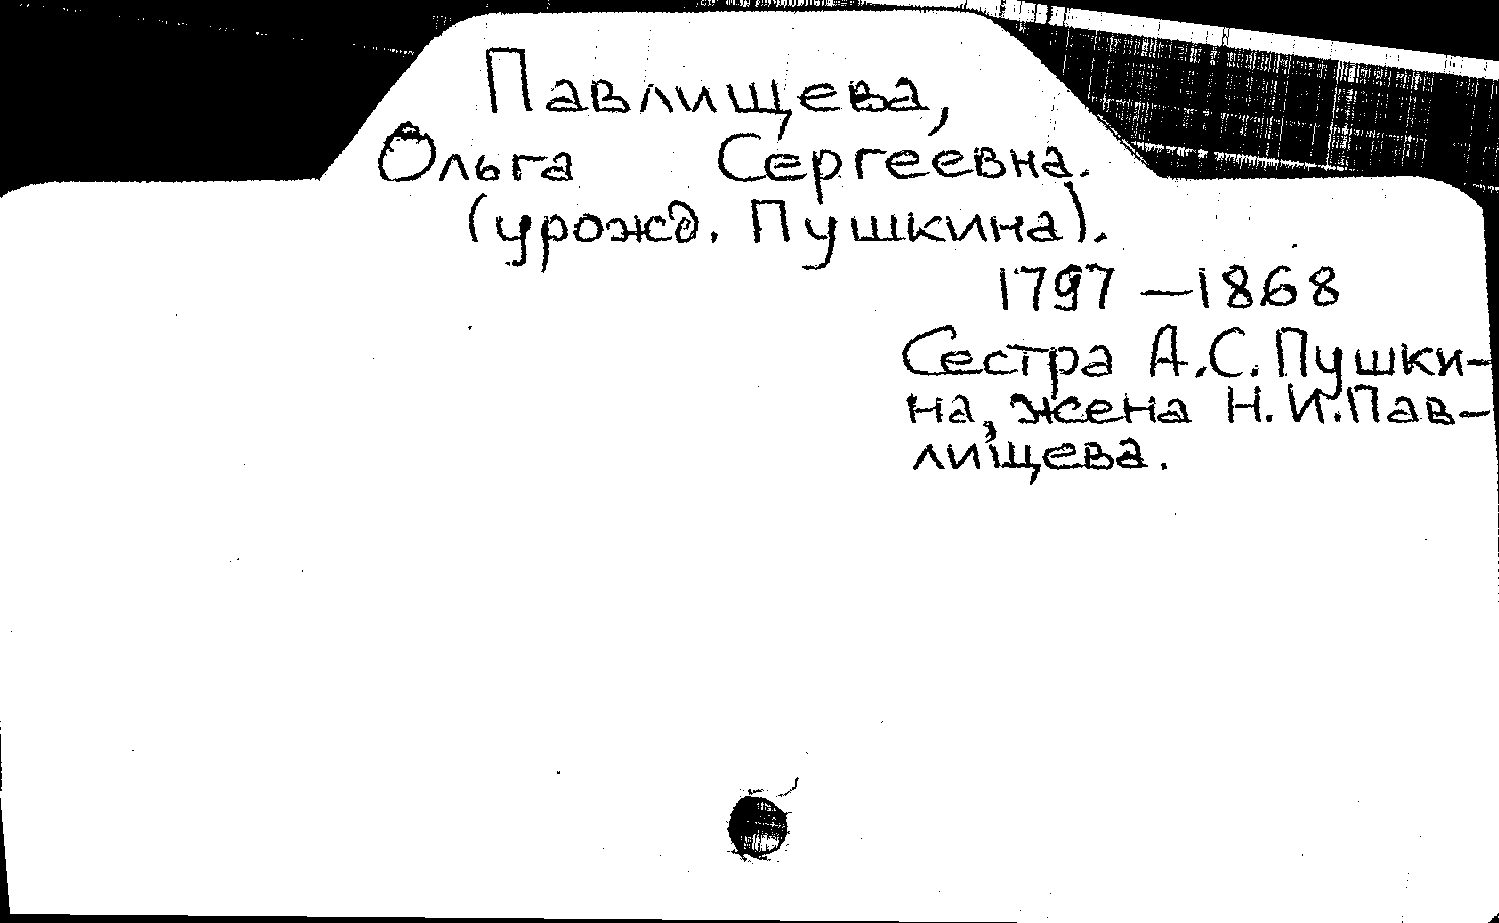 Павлищева,
Ольга Сергеевна.
(урожд. Пушкина).
1797 – 1868
Сестра А.С. Пушки-
на, жена Н.И. Пав-
лищева.